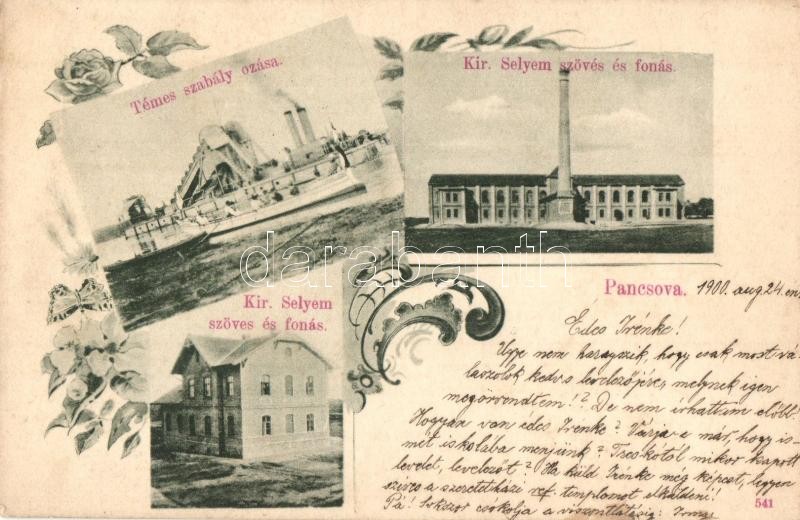 Témes szabály ozása.
Kir. Selyem szövés és fonás.
Kir. Selyem
szöves és fonás.
darabanth
Pancsova. 1900. aug. 24. én
Édes Irénke!
Ugye nem haragszik, hogy csak most vá-
laszolok kedves levelezőjére, melynek igen
megörvendtem!? De nem írhattam előbb.
Hogyan van édes Irenke? Várja-e már, hogy is-
mét iskolába menjünk? kapott
levelet, levelezőt? Ha küld Irénke még képest, legyen
szíves a szeretetházi ref. templomot elküldeni!
Pá! Sokszor csókolja a viszontlátásig:
541